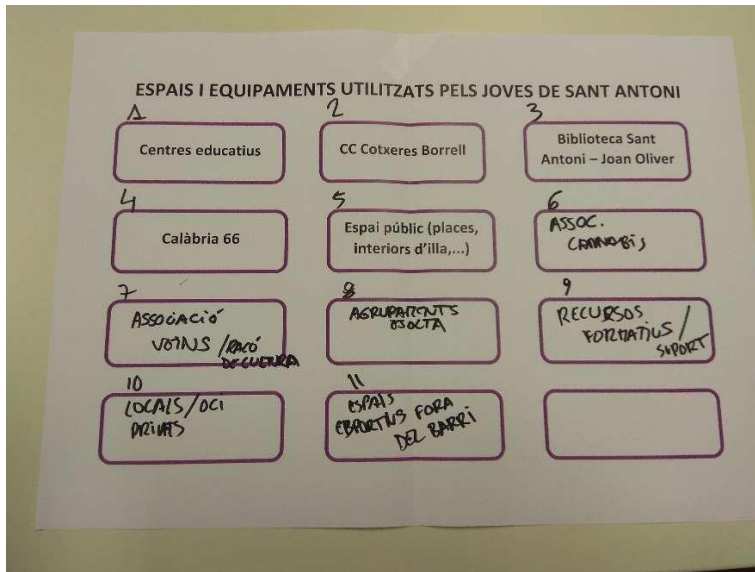 ESPAIS I EQUIPAMENTS UTILITZATS PELS JOVES DE SANT ANTONI
1
Centres educatius
2
CC Cotxeres Borrell
3
Biblioteca Sant
Antoni – Joan Oliver
4
Calàbria 66
5
Espai públic (places,
interiors d'illa,...)
6
ASSOC.
CANNABIS
7
ASSOCIACIÓ
VEÏNS / RACÓ
DE CULTURA
8
AGRUPAMENTS
ESCOLTA
9
RECURSOS
FORMATIUS /
SUPORT
10
LOCALS / OCI
PRIVATS
11
ESPAIS
ESPORTIUS FORA
DEL BARRI